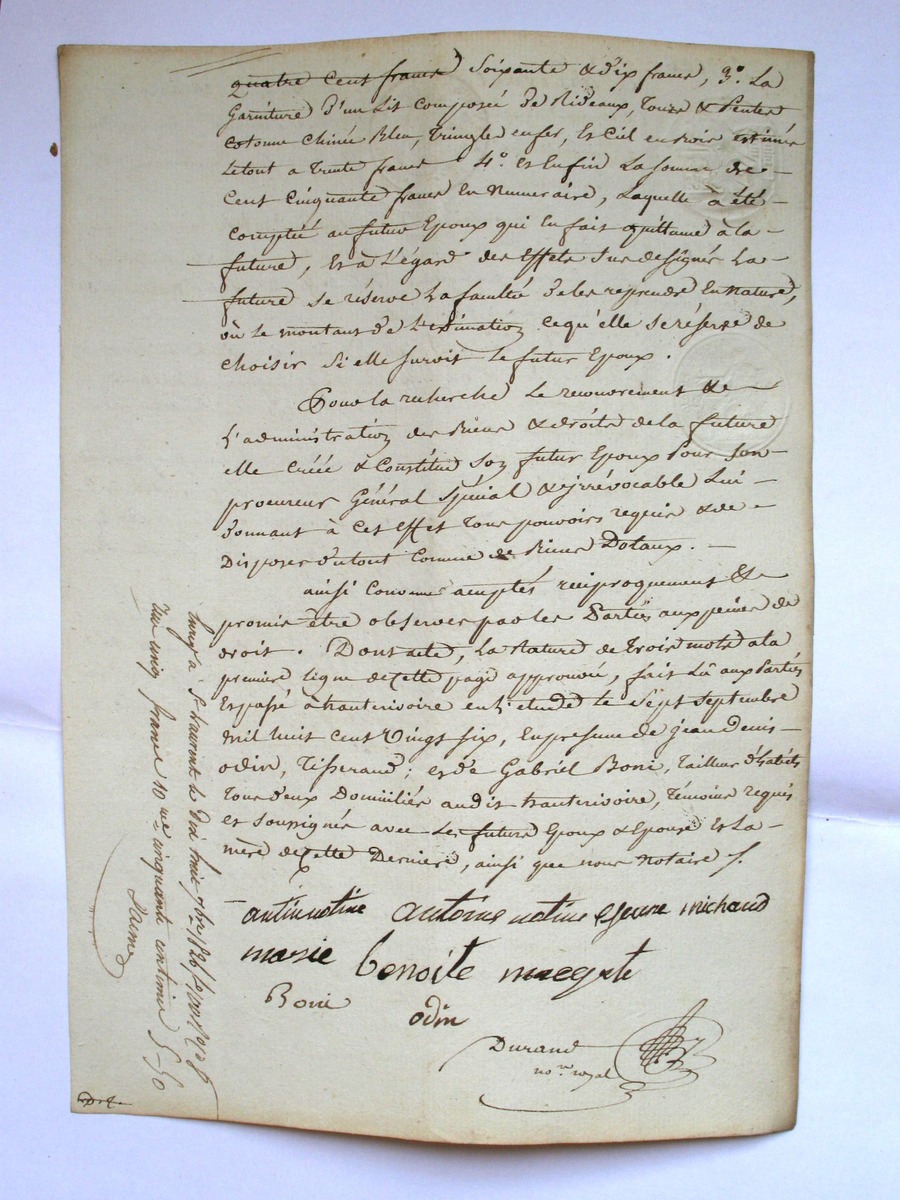 quatre cent francs soixante & dix francs, 3.º La
Garniture d'un Lit composée de Rideaux, Tours & Pentes
cotonne chinée Bleu, Tringles en fer, et Ciel en bois estimés
le tout a trente francs 4.º et Enfin La somme de
Cent cinquante francs En Numeraire, Laquelle à été
comptée au futur Epoux qui En fait quittance à la
future, Et a L'égard des effets sus designés La
future se réserve La faculté de les reprendre En nature,
où le montant de L'estimation ce qu'elle se réserve de
choisir si elle survit Le futur Epoux.
Pour la recherche Le recouvrement &
L'administration des Biens & droits de la future
elle créée & Constitue son futur Epoux Pour son
procureur Général Spécial & irrévocable Lui
donnant à cet effet Tous pouvoirs requis & de
Disposer du tout Comme de Biens Dotaux.
ainsi Convenu acceptés reciproquement &
promis être observer par les Parties aux peines de
droit. Dont acte, La Rature de Trois mots a la
première ligne de cette page approuvée, fait Lû aux Parties
Et passé à hauterivoire en l'etude le Sept Septembre
mil huit cent vingt six, En presence de jean denis
odin, Tisserand; et de Gabriël Boni, Tailleur d'habits
Tous deux Domiciliés audit hauterivoire, Témoins requis
et soussignés avec Les futurs Epoux & Epouse et La
mère de Cette Dernière, ainsi que nous Notaire /.
antoine michaud
marie benoite
Boni
odin
Durand
no.re royal
Enreg.é a St Laurent de huit 7bre 1826
cinq francs 10.me cinquante centimes 5-50